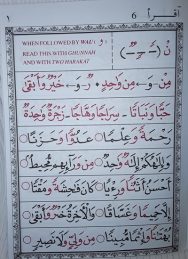 اقــرأ 6 ١
WHEN FOLLOWED BY WAU و
READ THIS WITH GHUNNAH
AND WITH TWO HARAKAT
نْ (ـً ـٍ ـٌ)
مِنْ - و = مِنْ وَاحِدٍ ○ رٌ - و = خَيْرٌ وَأَبْقَى
حَبًّا وَنَبَاتًا – سِرَاجًا وَهَّاجًا – زَجْرَةٌ وَحِدَةٌ
رَحْمَةً وَعِلْمًا ○ عَدُوًّا وَحَزَنًا
وَإِلٰهُكُمْ إِلٰهٌ وَٰحِدٌ ○ مِنْ وَرَآئِهِمْ مُحِيطٌ
أَحْسَنُ أَثَاثًا وَرِءْيًا ○ كَانَ فَحِشَةً وَمَقْتًا
إِلَّا حَمِيمًا وَغَسَّاقًا ○ وَالْأٰخِرَةُ خَيْرٌ وَأَبْقَى
بُهْتَانًا وَإِثْمًا مُبِينًا ○ مِنْ وَلِيٍّ وَلَا نَصِيرٍ